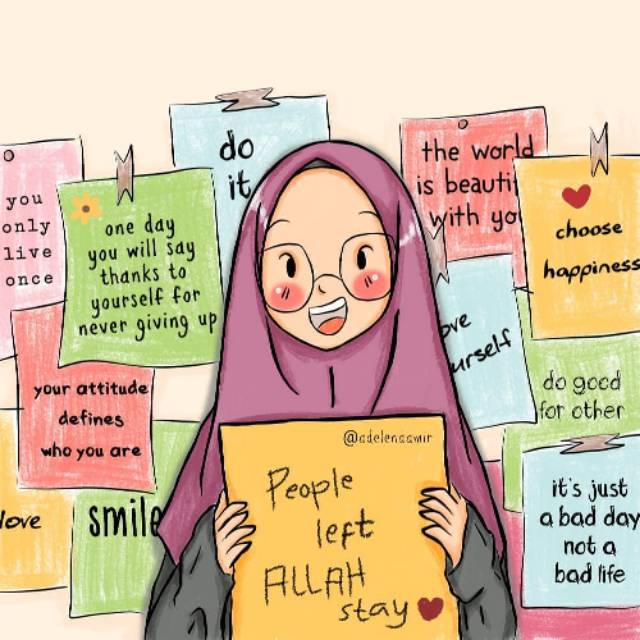 you
only
live
once
one day
you will say
thanks to
yourself for
never giving up
do
it
the world
is beauti
with yo
choose
happiness
your attitude
defines
who you are
ove
urself
do good
for other
love
smile
it's just
a bad day
not a
bad life
@adelenaamir
People
left
ALLAH
stay